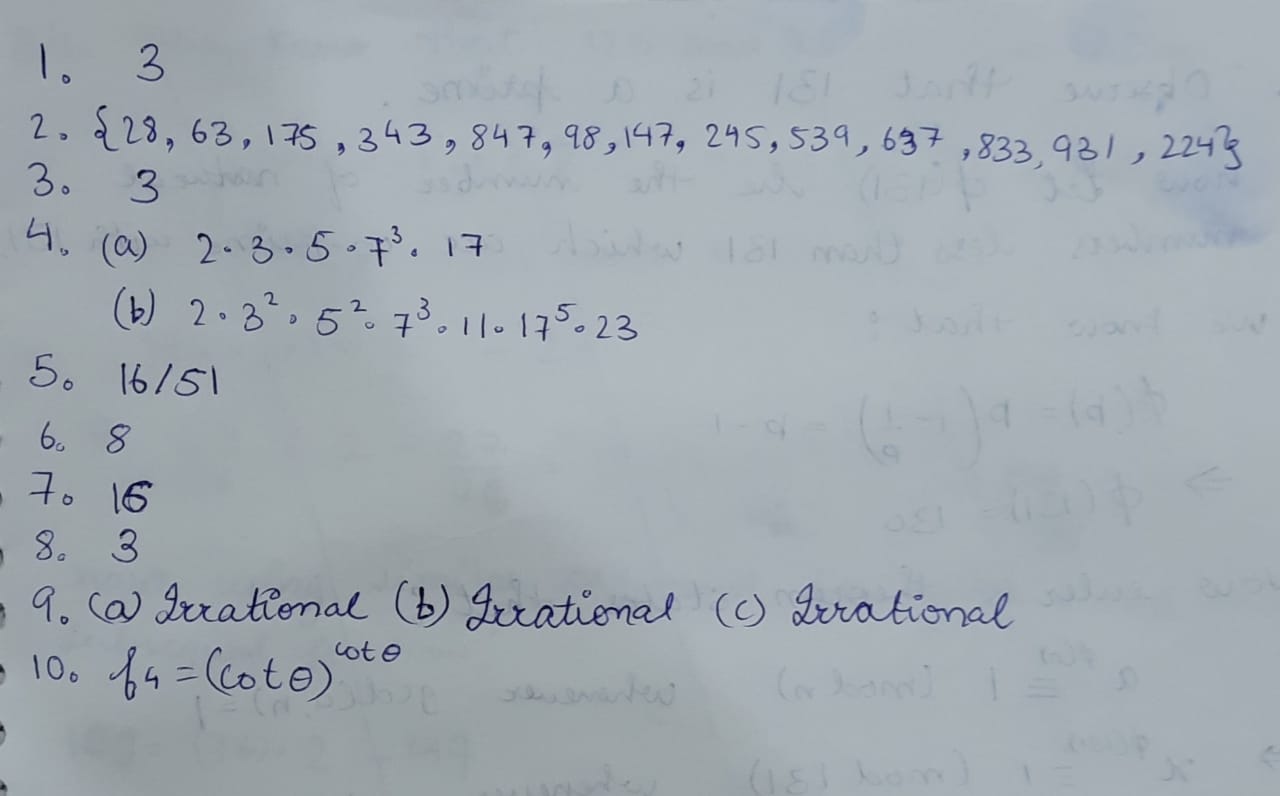 1. 3
2. {28, 63, 175, 343, 847, 98, 147, 245, 539, 637, 833, 931, 224}
3. 3
4. (a) 2·3·5·7³·17
(b) 2·3²·5²·7³·11·17⁵·23
5. 16/51
6. 8
7. 16
8. 3
9. (a) Irrational (b) Irrational (c) Irrational
10. f₄ = (cot θ)^cot θ